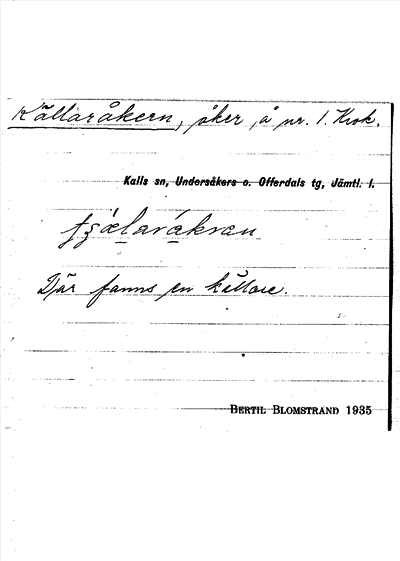 Källaråkern, åker, å nr. 1. Krok.
Kalls sn, Undersåkers o. Offerdals tg, Jämtl. l.
Där fanns en källare.
BERTIL BLOMSTRAND 1935